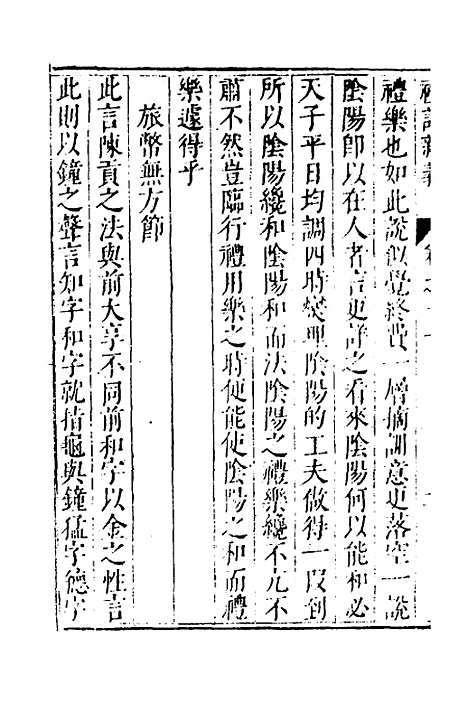 禮樂也如此說似覺終費一層摘訓意更落空一說
陰陽即以在人者言更詳之看來陰陽何以能和必
天子平日均調四時燮理陰陽的工夫做得一段到
所以陰陽纔和陰陽和而法陰陽之禮樂纔不亢不
肅不然豈臨行禮用樂之時便能使陰陽之和而禮
樂遽得乎
旅幣無方節
此言陳貢之法與前大享不同前和字以金之性言
此則以鐘之聲言知字和字就指龜與鐘猛字德字